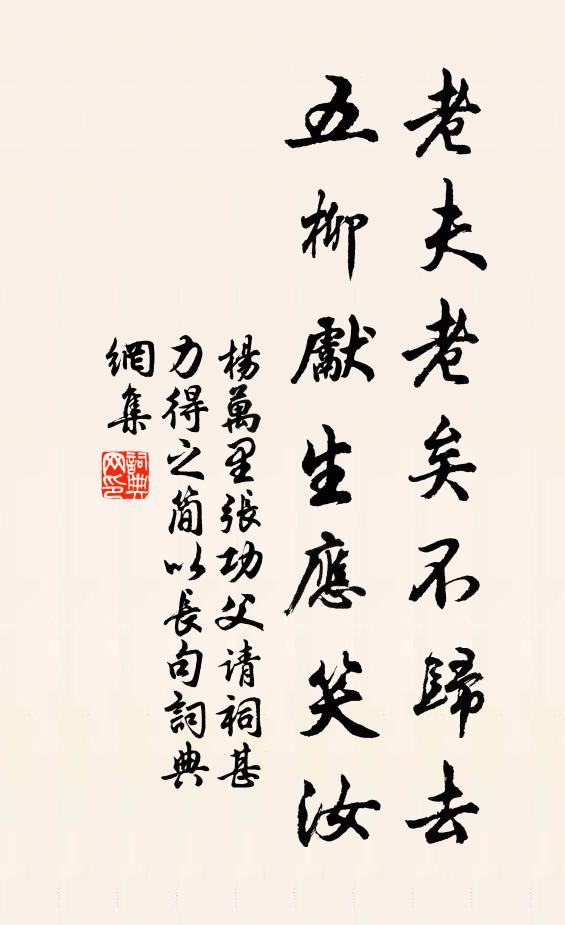 老夫老矣不歸去
五柳獻生應笑汝
楊萬里張功父请祠甚
力得之简以長句詞典
網集
詞典網印